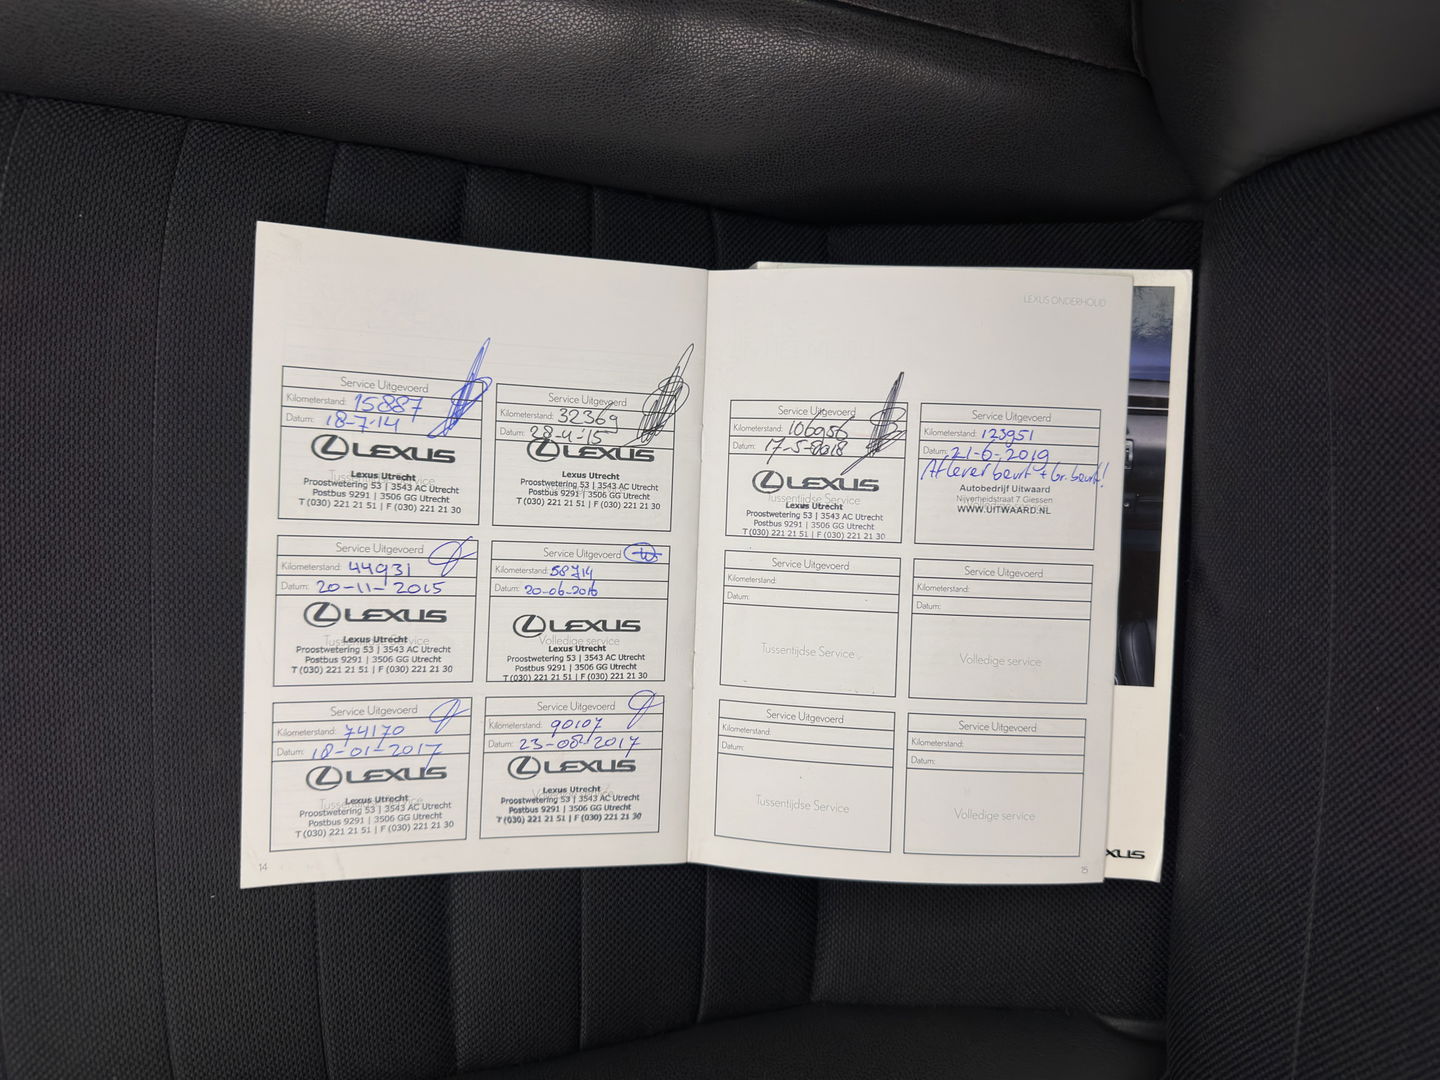 Service Uitgevoerd
Kilometerstand: 15887
Datum: 18-7-14
LEXUS
Lexus Utrecht
Proostwetering 53 | 3543 AC Utrecht
Postbus 9291 | 3506 GG Utrecht
T (030) 221 21 51 | F (030) 221 21 30
Service Uitgevoerd
Kilometerstand: 32369
Datum: 28-4-'15
LEXUS
Lexus Utrecht
Proostwetering 53 | 3543 AC Utrecht
Postbus 9291 | 3506 GG Utrecht
T (030) 221 21 51 | F (030) 221 21 30
Service Uitgevoerd
Kilometerstand: 44931
Datum: 20-11-2015
LEXUS
Lexus Utrecht
Proostwetering 53 | 3543 AC Utrecht
Postbus 9291 | 3506 GG Utrecht
T (030) 221 21 51 | F (030) 221 21 30
Service Uitgevoerd
Kilometerstand: 58714
Datum: 20-06-2016
LEXUS
Volledige service
Lexus Utrecht
Proostwetering 53 | 3543 AC Utrecht
Postbus 9291 | 3506 GG Utrecht
T (030) 221 21 51 | F (030) 221 21 30
Service Uitgevoerd
Kilometerstand: 74170
Datum: 18-01-2017
LEXUS
Lexus Utrecht
Proostwetering 53 | 3543 AC Utrecht
Postbus 9291 | 3506 GG Utrecht
T (030) 221 21 51 | F (030) 221 21 30
Service Uitgevoerd
Kilometerstand: 90107
Datum: 23-08-2017
LEXUS
Lexus Utrecht
Proostwetering 53 | 3543 AC Utrecht
Postbus 9291 | 3506 GG Utrecht
T (030) 221 21 51 | F (030) 221 21 30
14
LEXUS ONDERHOUD
Service Uitgevoerd
Kilometerstand: 106956
Datum: 17-5-2018
LEXUS
Tussentijdse Service
Lexus Utrecht
Proostwetering 53 | 3543 AC Utrecht
Postbus 9291 | 3506 GG Utrecht
T (030) 221 21 51 | F (030) 221 21 30
Service Uitgevoerd
Kilometerstand: 123951
Datum: 21-6-2019
Afleverbeurt + Gr. beurt!
Autobedrijf Uitwaard
Nijverheidstraat 7 Giessen
WWW.UITWAARD.NL
Service Uitgevoerd
Kilometerstand:
Datum:
Tussentijdse Service
Service Uitgevoerd
Kilometerstand:
Datum:
Volledige service
Service Uitgevoerd
Kilometerstand:
Datum:
Tussentijdse Service
Service Uitgevoerd
Kilometerstand:
Datum:
Volledige service
15
XUS